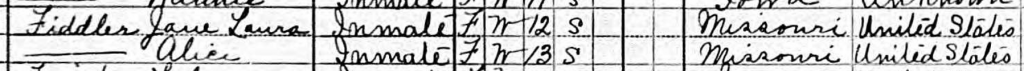 Fiddler Jane Laura Inmate F W 12 S Missouri United States
—— Alice Inmate F W 13 S Missouri United States